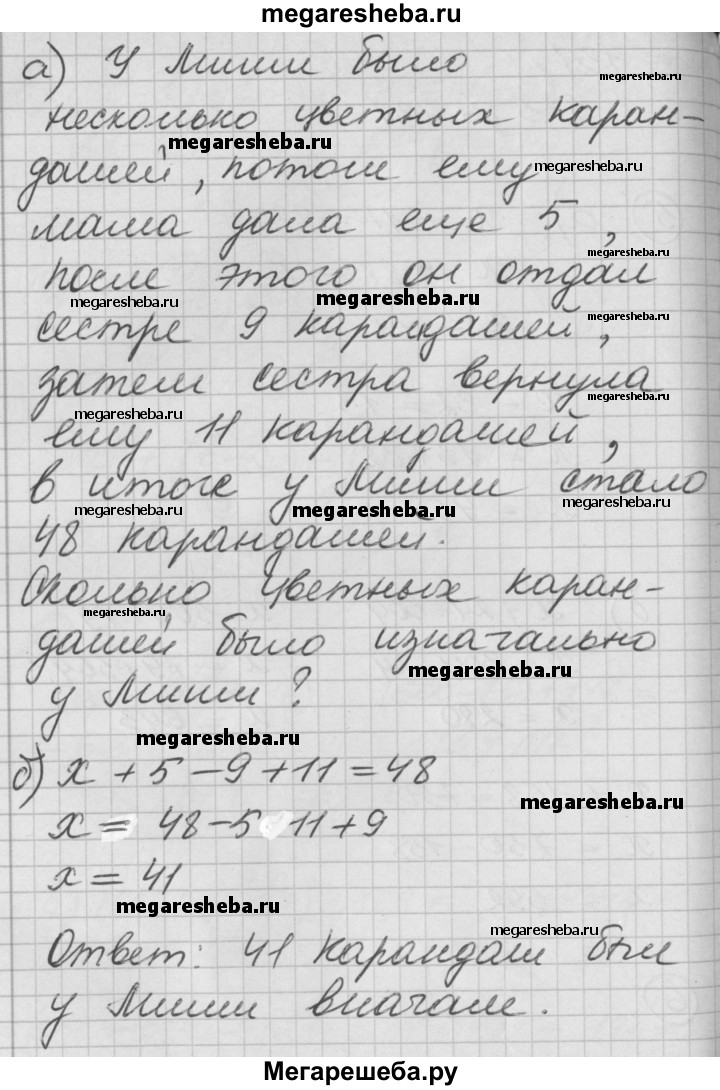 megaresheba.ru
а) У Миши было
megaresheba.ru
несколько цветных каран-
megaresheba.ru
дашей, потом ему
megaresheba.ru
мама дала еще 5,
после этого он отдал
megaresheba.ru
megaresheba.ru
megaresheba.ru
сестре 9 карандашей,
megaresheba.ru
затем сестра вернула
megaresheba.ru
megaresheba.ru
ему 11 карандашей,
в итоге у Миши стало
megaresheba.ru
megaresheba.ru
megaresheba.ru
48 карандашей.
Сколько цветных каран-
megaresheba.ru
дашей было изначально
megaresheba.ru
у Миши?
megaresheba.ru
б) х + 5 - 9 + 11 = 48
megaresheba.ru
х = 48 - 5 11 + 9
х = 41
megaresheba.ru
megaresheba.ru
Ответ: 41 карандаш был
megaresheba.ru
у Миши вначале.
Мегарешеба.ру